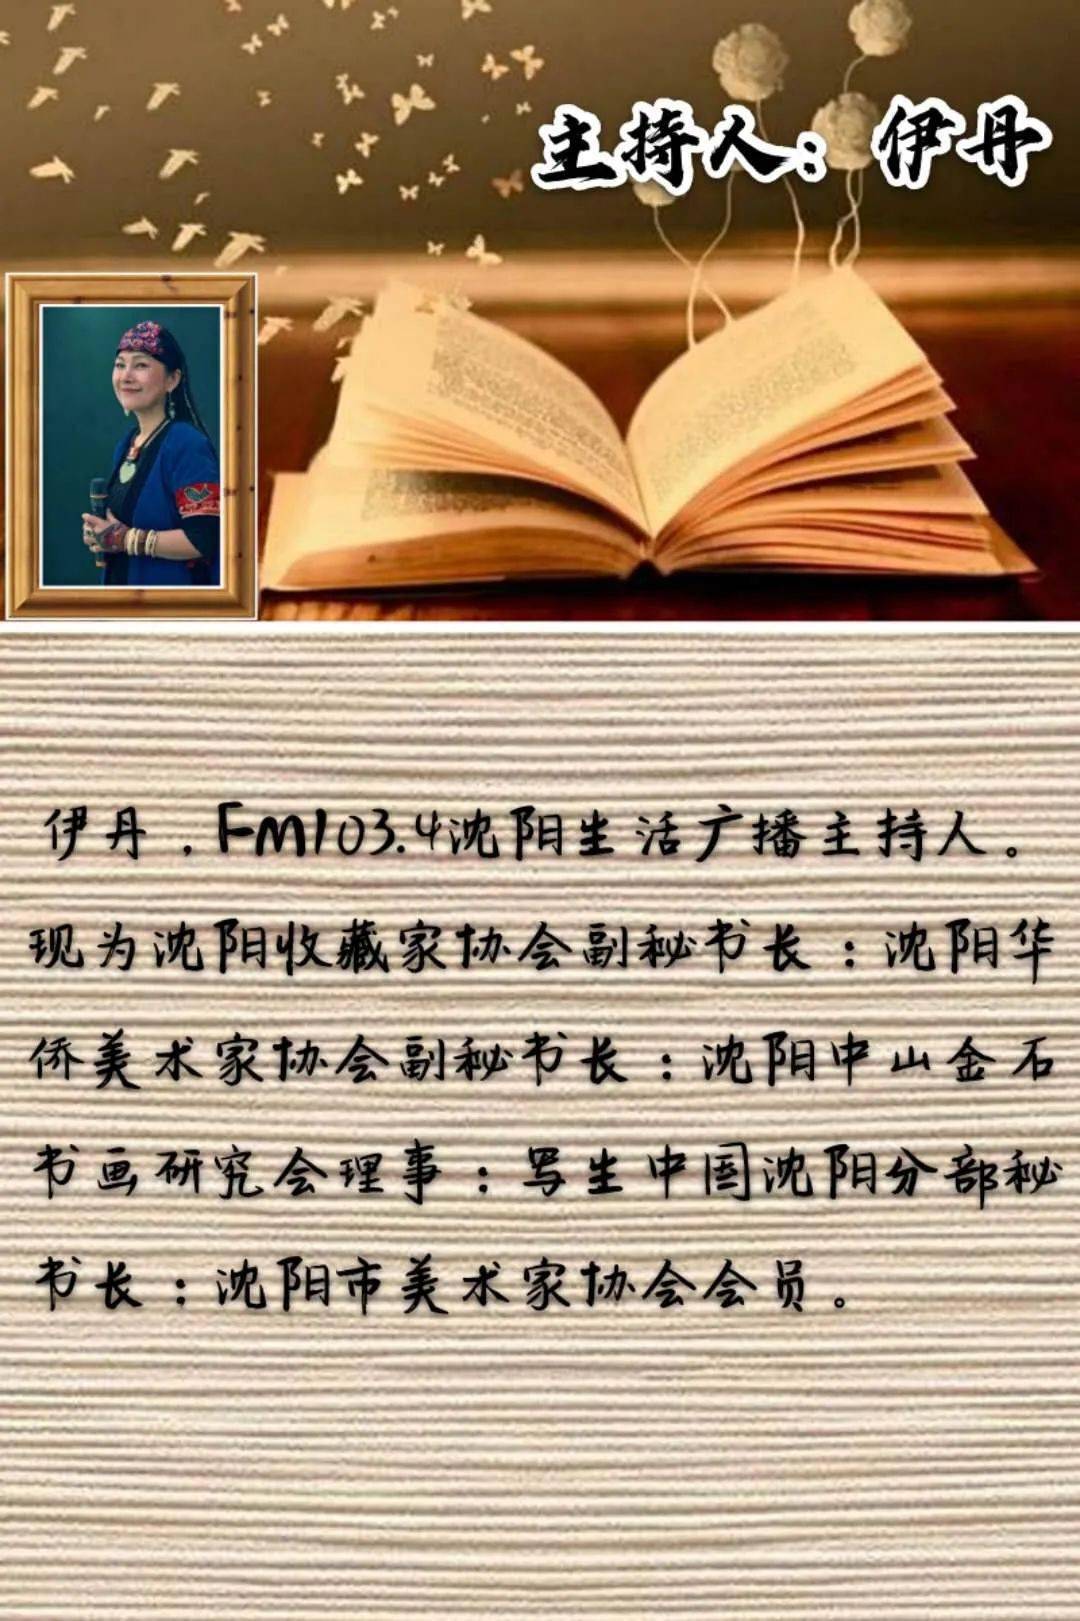 主持人：伊丹
伊丹，FM103.4沈阳生活广播主持人。
现为沈阳收藏家协会副秘书长：沈阳华
侨美术家协会副秘书长：沈阳中山金石
书画研究会理事：写生中国沈阳分部秘
书长：沈阳市美术家协会会员。